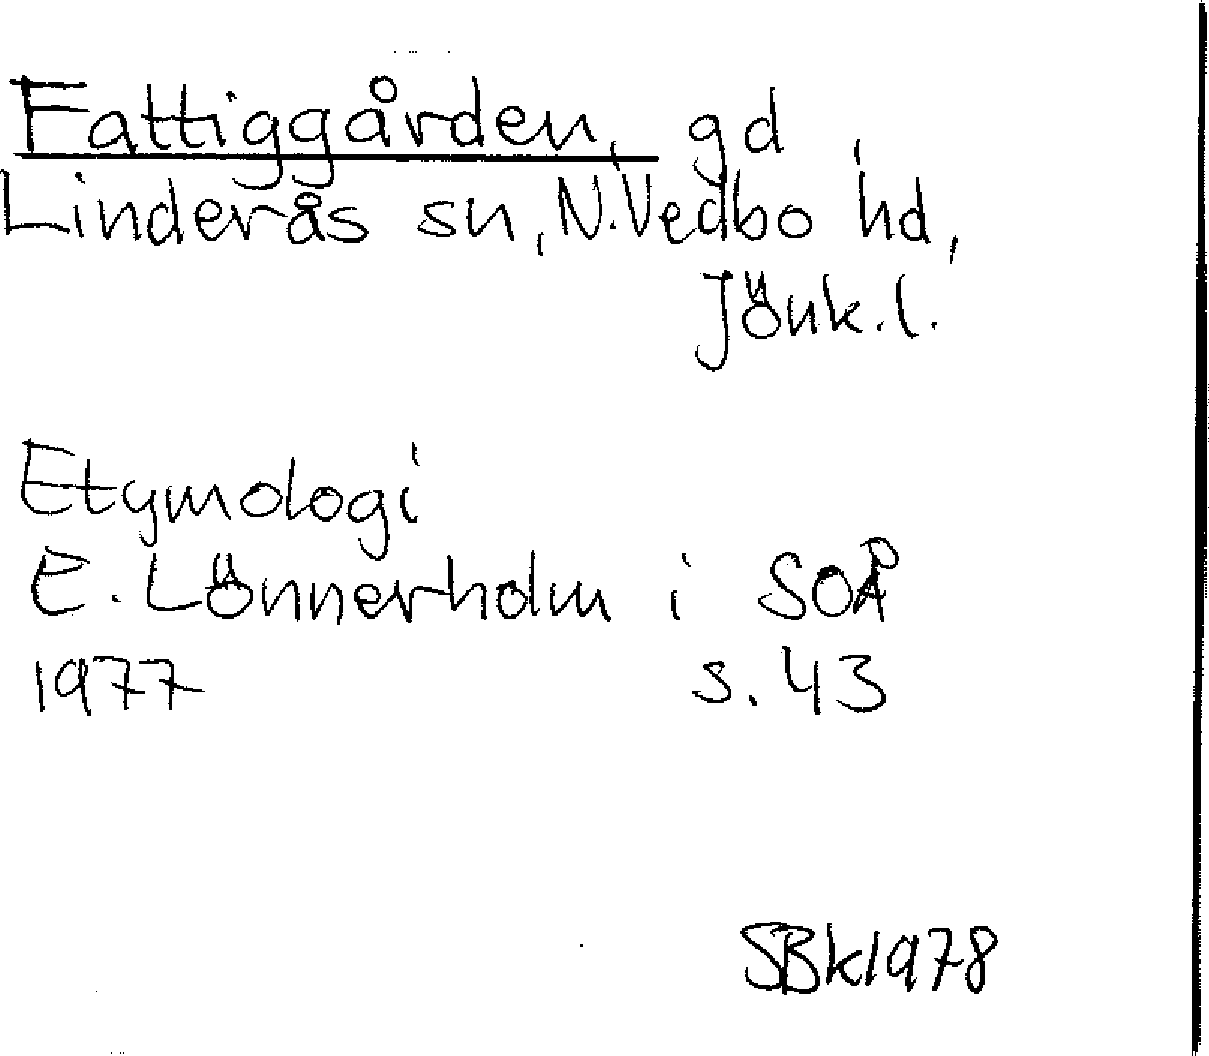 Fattiggården, gd,
Linderås sn, N. Vedbo hd,
Jönk.l.
Etymologi
E. Lönnerholm i SOÅ
1977 s. 43
SBk1978